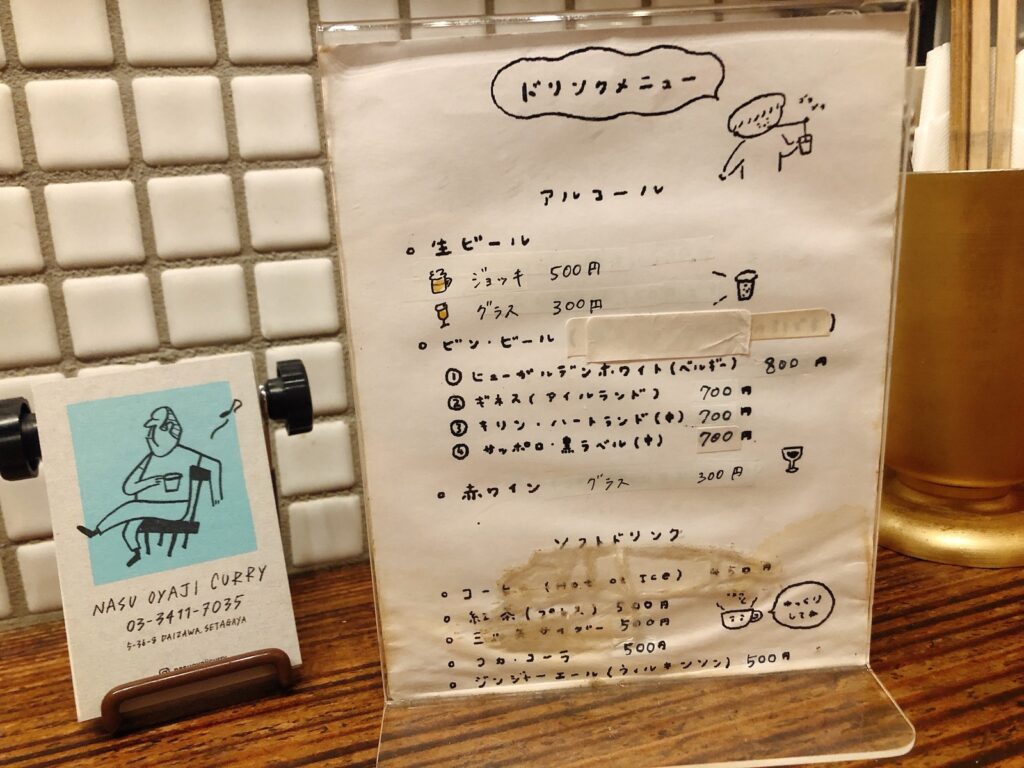 ドリンクメニュー
アルコール
。生ビール
ジョッキ 500円
グラス 300円
。ビン・ビール
① ヒューガルデンホワイト(ベルギー) 800円
② ギネス(アイルランド) 700円
③ キリン・ハートランド(中) 700円
④ サッポロ・黒ラベル(中) 700円
。赤ワイン グラス 300円
ソフトドリンク
。コーヒー (Hot or Ice) 450円
。紅茶(プレス) 500円
。三ツ矢サイダー 500円
。コカ・コーラ 500円
。ジンジャーエール(ウィルキンソン) 500円
ゆっくり
してね
NASU OYAJI CURRY
03-3411-7035
5-36-8 DAIZAWA SETAGAYA